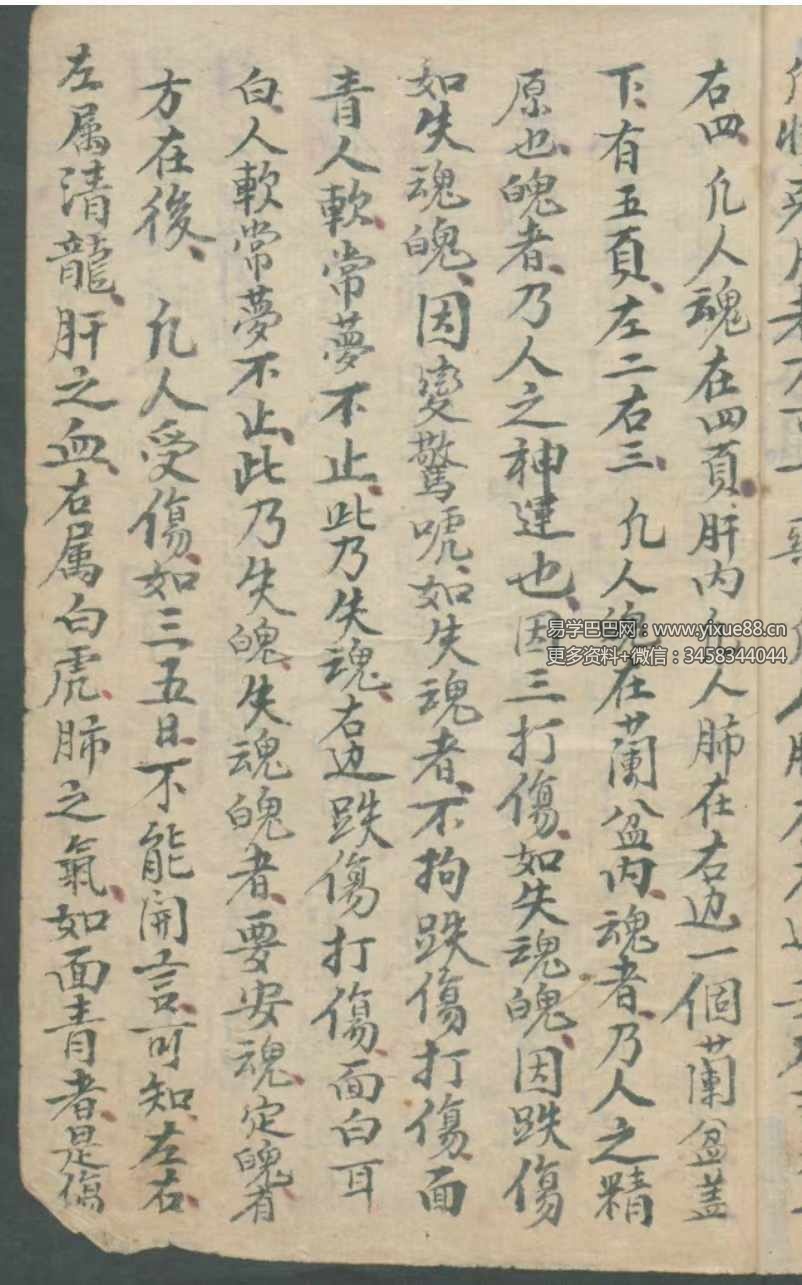 右四、凢人魂在四頁肝内凢人肺在右边一個蘭盆蓋
下、有五頁、左二右三、凢人魄在蘭盆内、魂者、乃人之精
原也、魄者、乃人之神運也、因三打傷、如失魂魄、因跌傷
如失魂魄、因變驚唬、如失魂者、不拘跌傷打傷、面
青人軟、常夢不止、此乃失魂、右边跌傷打傷、面白耳
白、人軟常夢不止、此乃失魄、失魂魄者、要安魂、定魄、有
方在後、凢人受傷、如三五日、不能開言、可知、左右、
左属清龍、肝之血、右属白虎、肺之氣、如面青者、是傷
易学巴巴网：www.yixue88.cn
更多资料+微信：3458344044